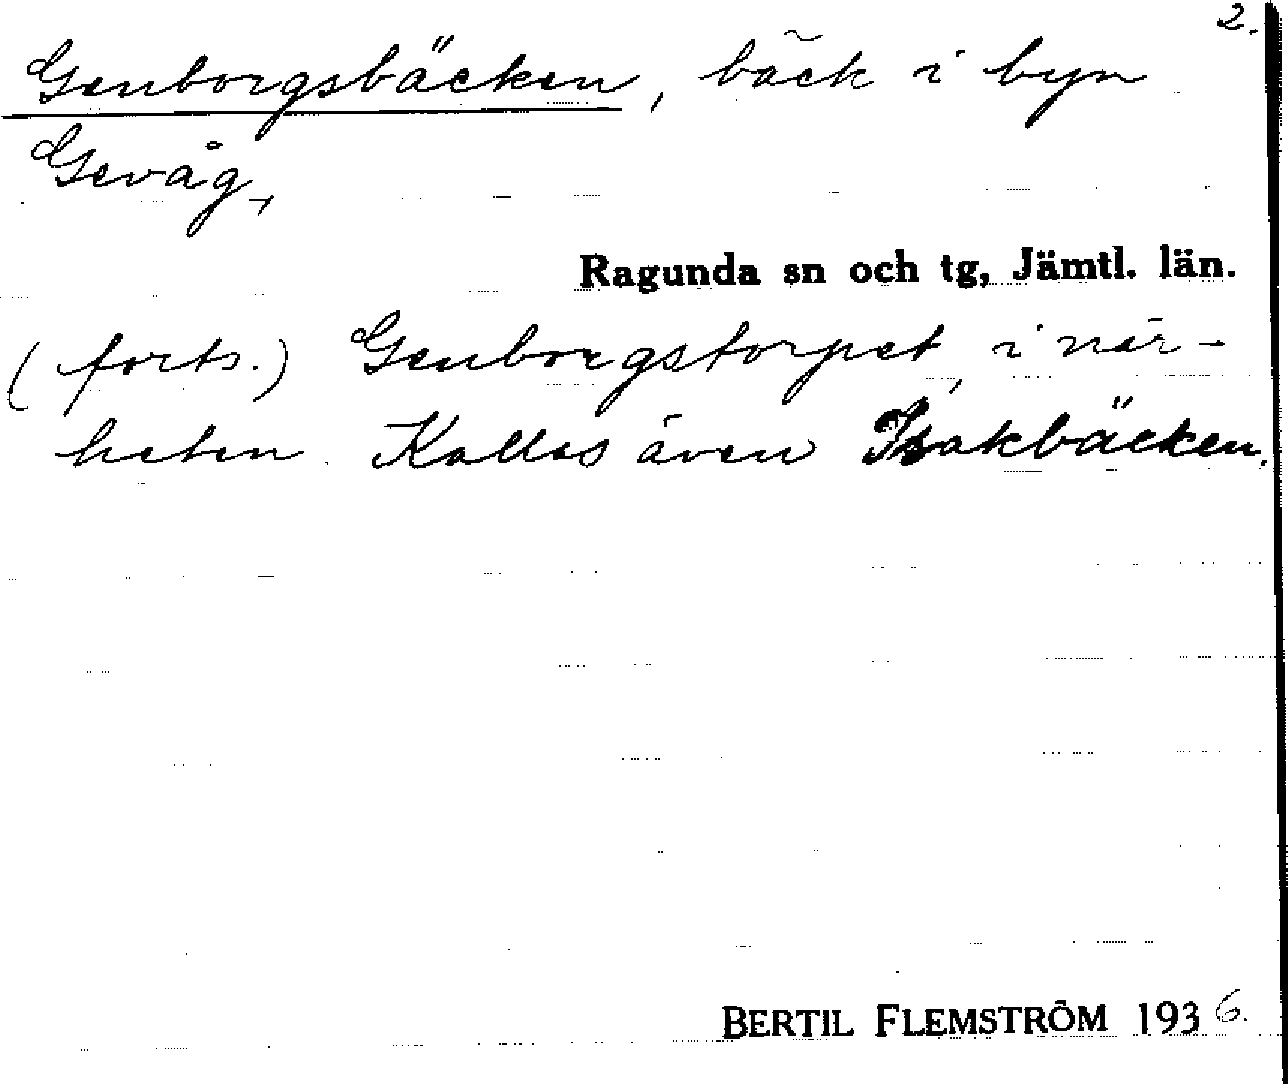 2.
Genborgsbäcken, bäck i byn
Gevåg,
Ragunda sn och tg, Jämtl. län.
(forts.) Genborgstorpet, i när-
heten. Kallas även Isakbäcken.
BERTIL FLEMSTRÖM 1936.